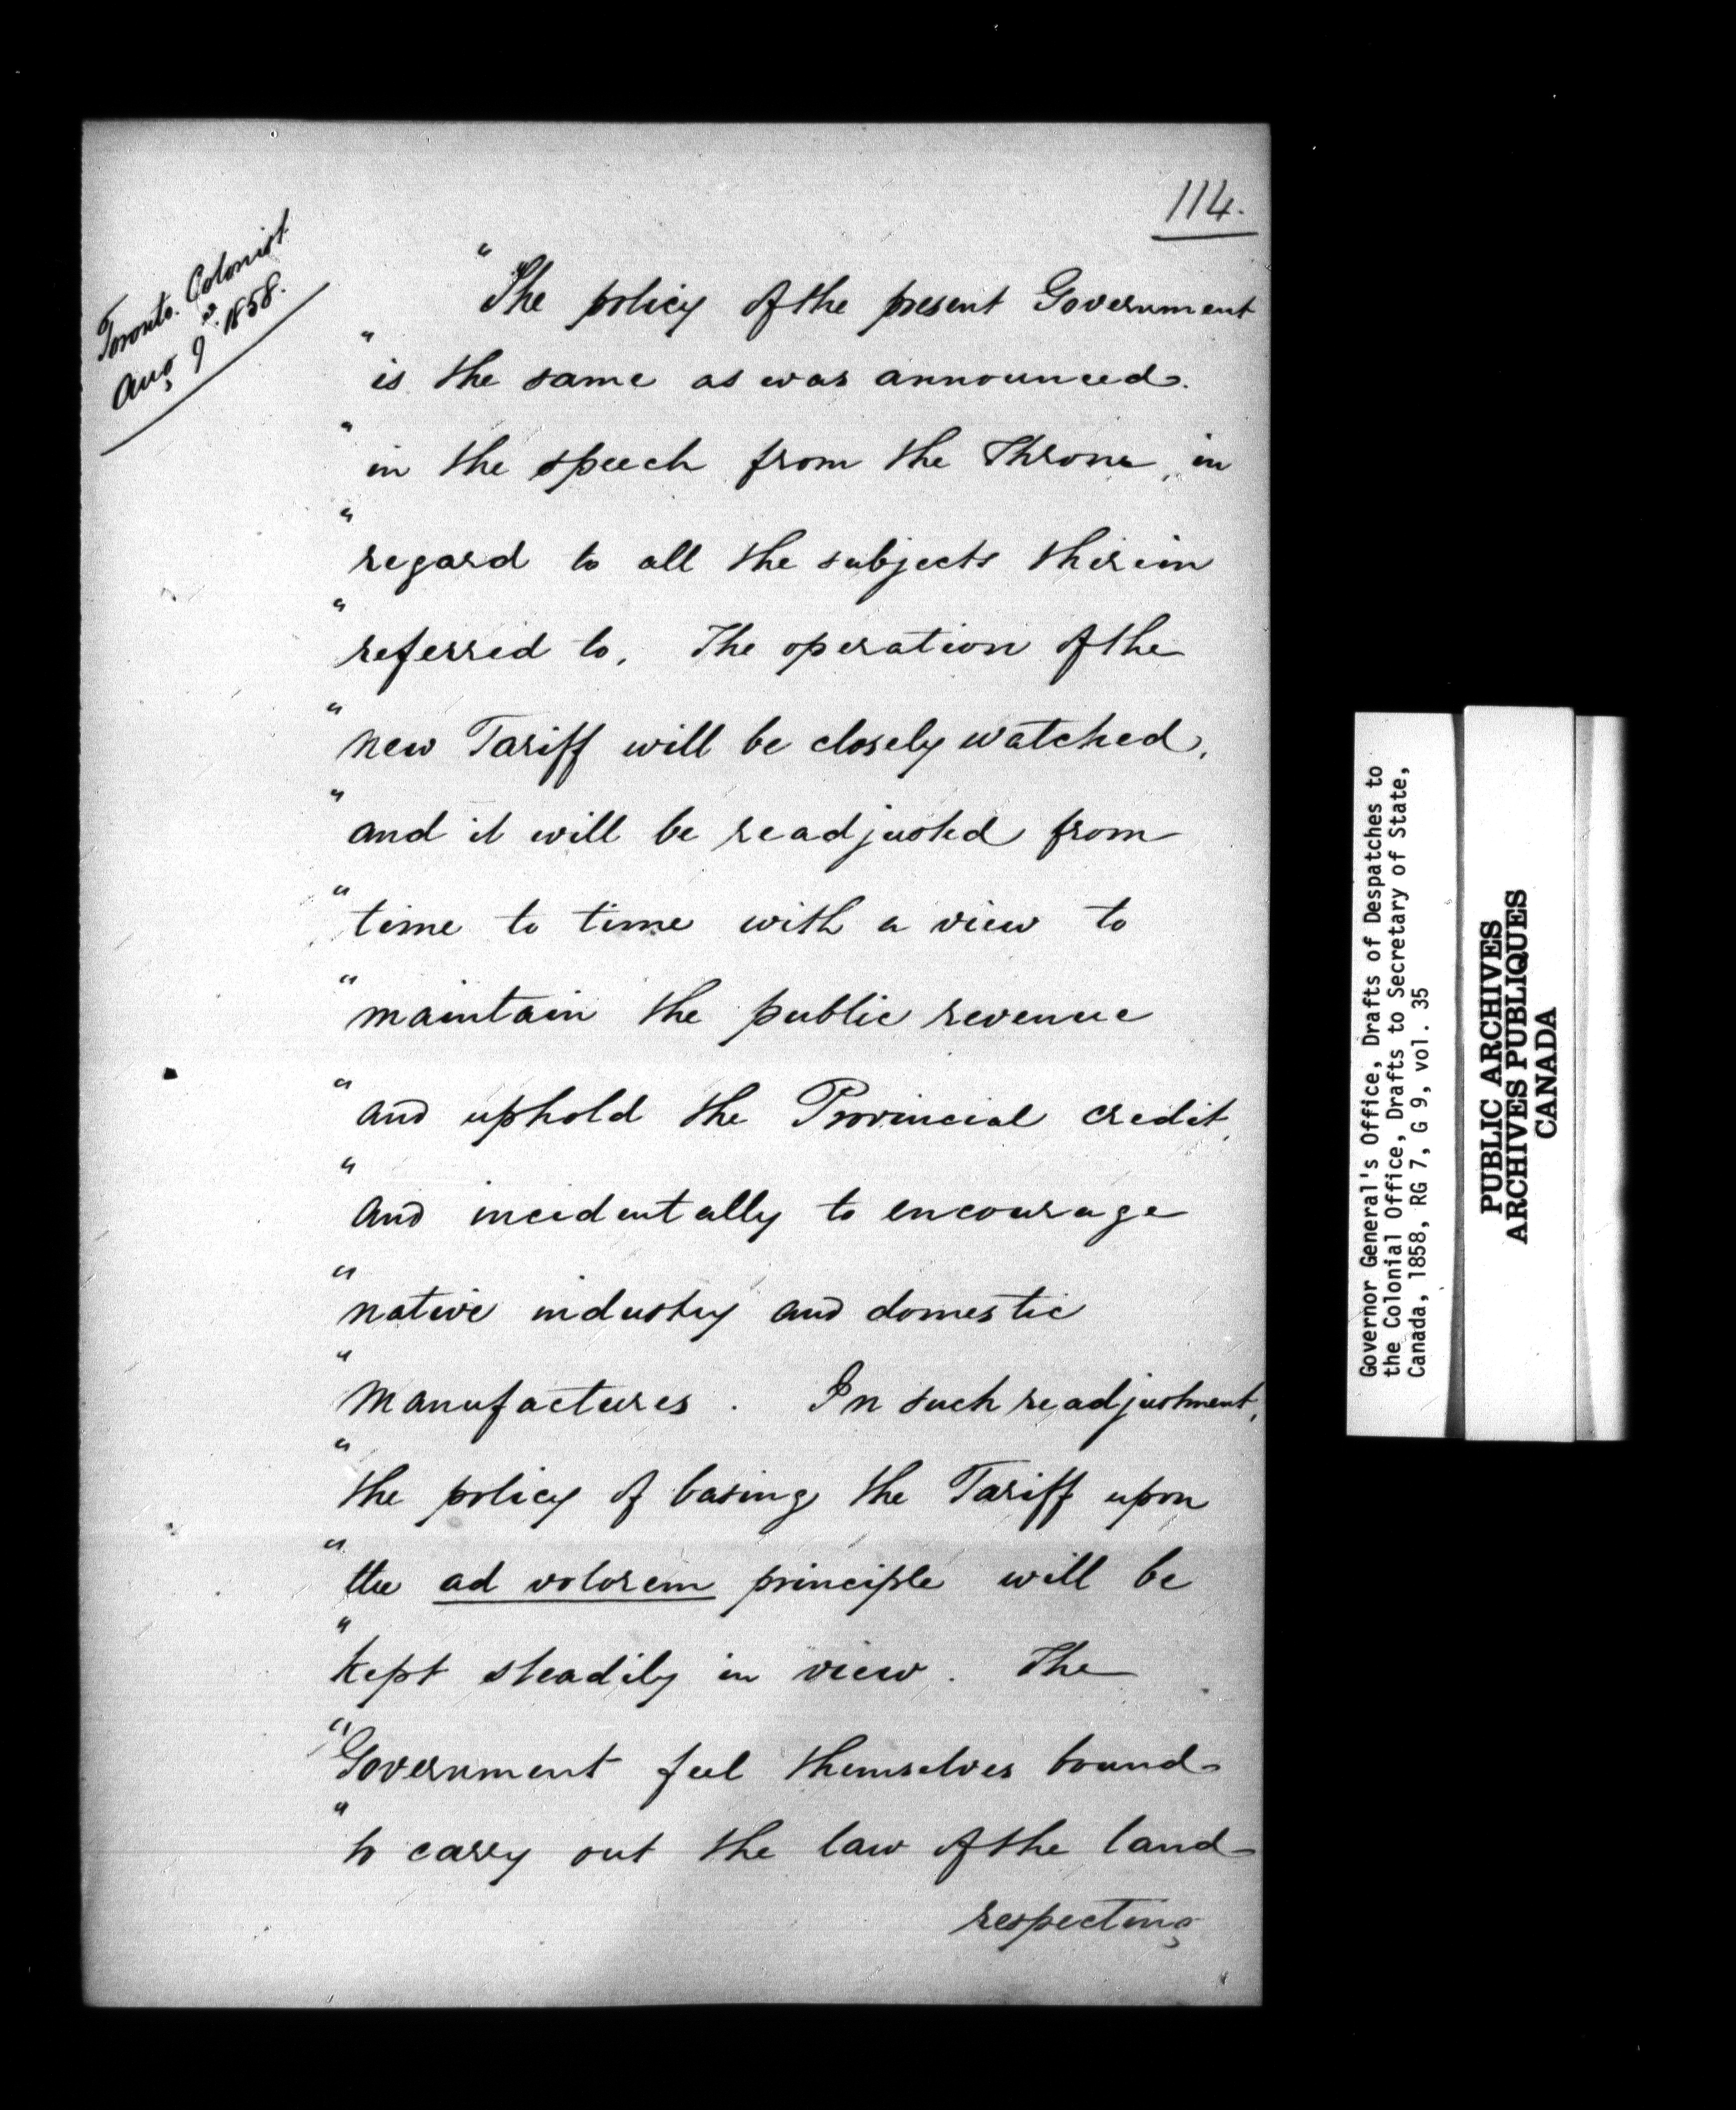 114.
Toronto. Colonist
Aug 9. 1858.
" The policy of the present Government
" is the same as was announced.
" in the speech from the Throne, in
" regard to all the subjects therein
" referred to. The operation of the
" new Tariff will be closely watched,
" and it will be readjusted from
" time to time with a view to
" maintain the public revenue
" and uphold the Provincial credit,
" and incidentally to encourage
" native industry and domestic
" manufactures. In such readjustment,
" the policy of basing the Tariff upon
" the ad volorem principle will be
" kept steadily in view. The
" Government feel themselves bound
" to carry out the law of the land
respecting
Governor General's Office, Drafts of Despatches to
the Colonial Office, Drafts to Secretary of State,
Canada, 1858, RG 7, G 9, vol. 35
PUBLIC ARCHIVES
ARCHIVES PUBLIQUES
CANADA